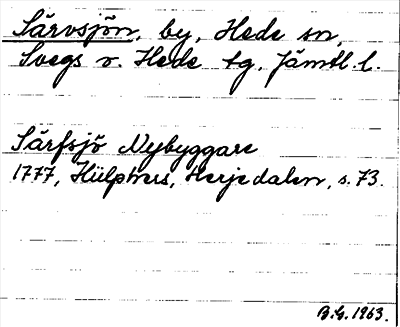 Särvsjön, by, Hede sn,
Svegs o. Hede tg, Jämtl. l.
Särfsjö Nybyggare
1777, Hülphers, Herjedalen, s. 73.
B.G. 1963.